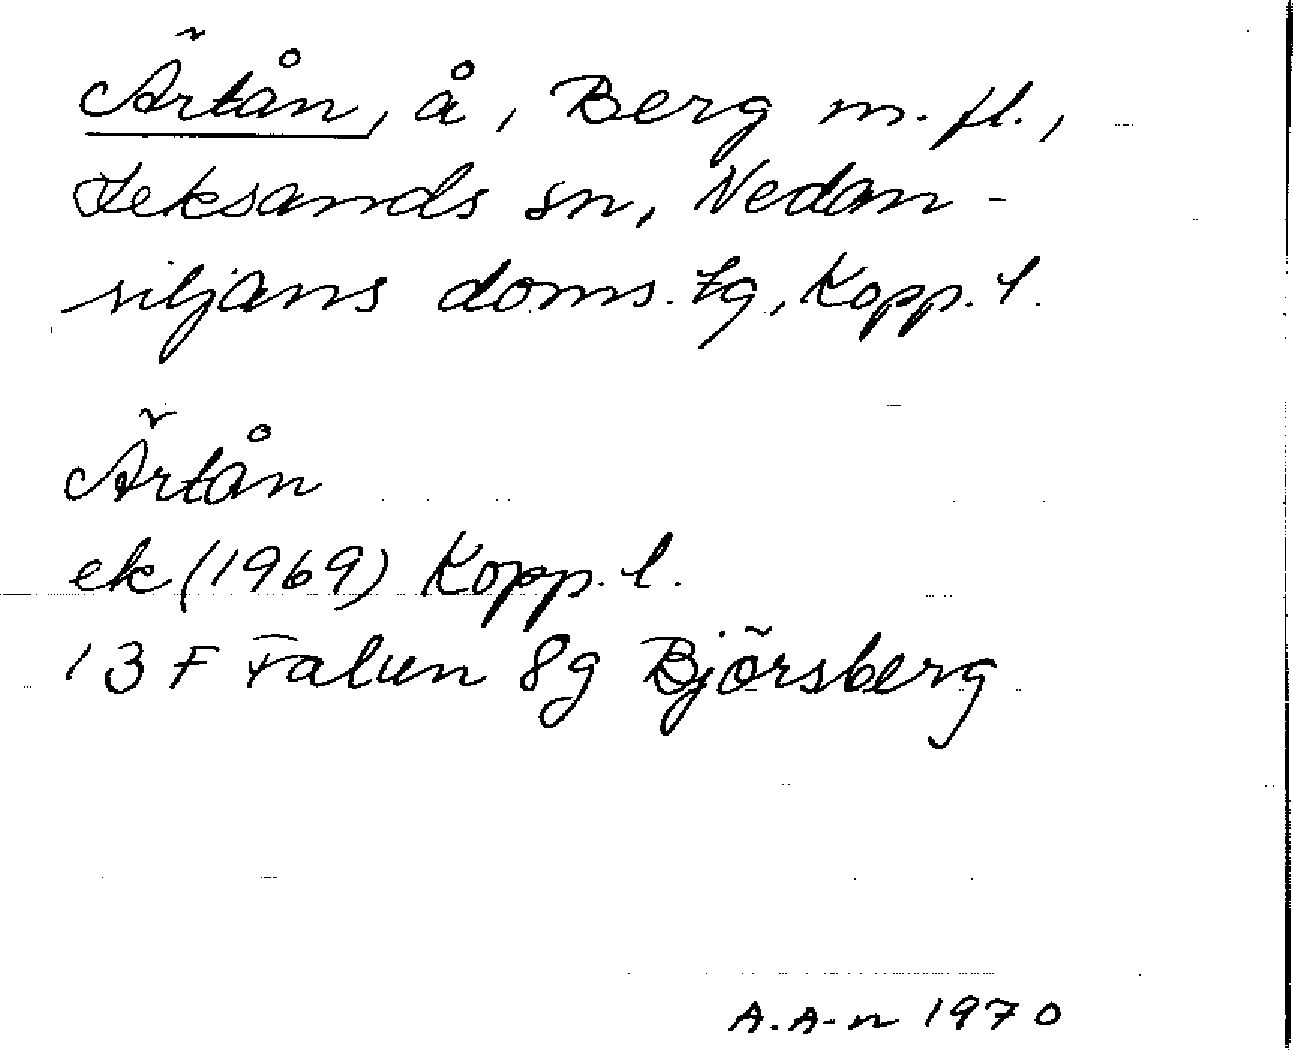 Ärtån, å, Berg m. fl.,
Leksands sn, Nedan-
siljans doms. tg, Kopp. l.
Ärtån
ek (1969) Kopp. l.
13 F Falun 8g Björsberg
A. A-n 1970